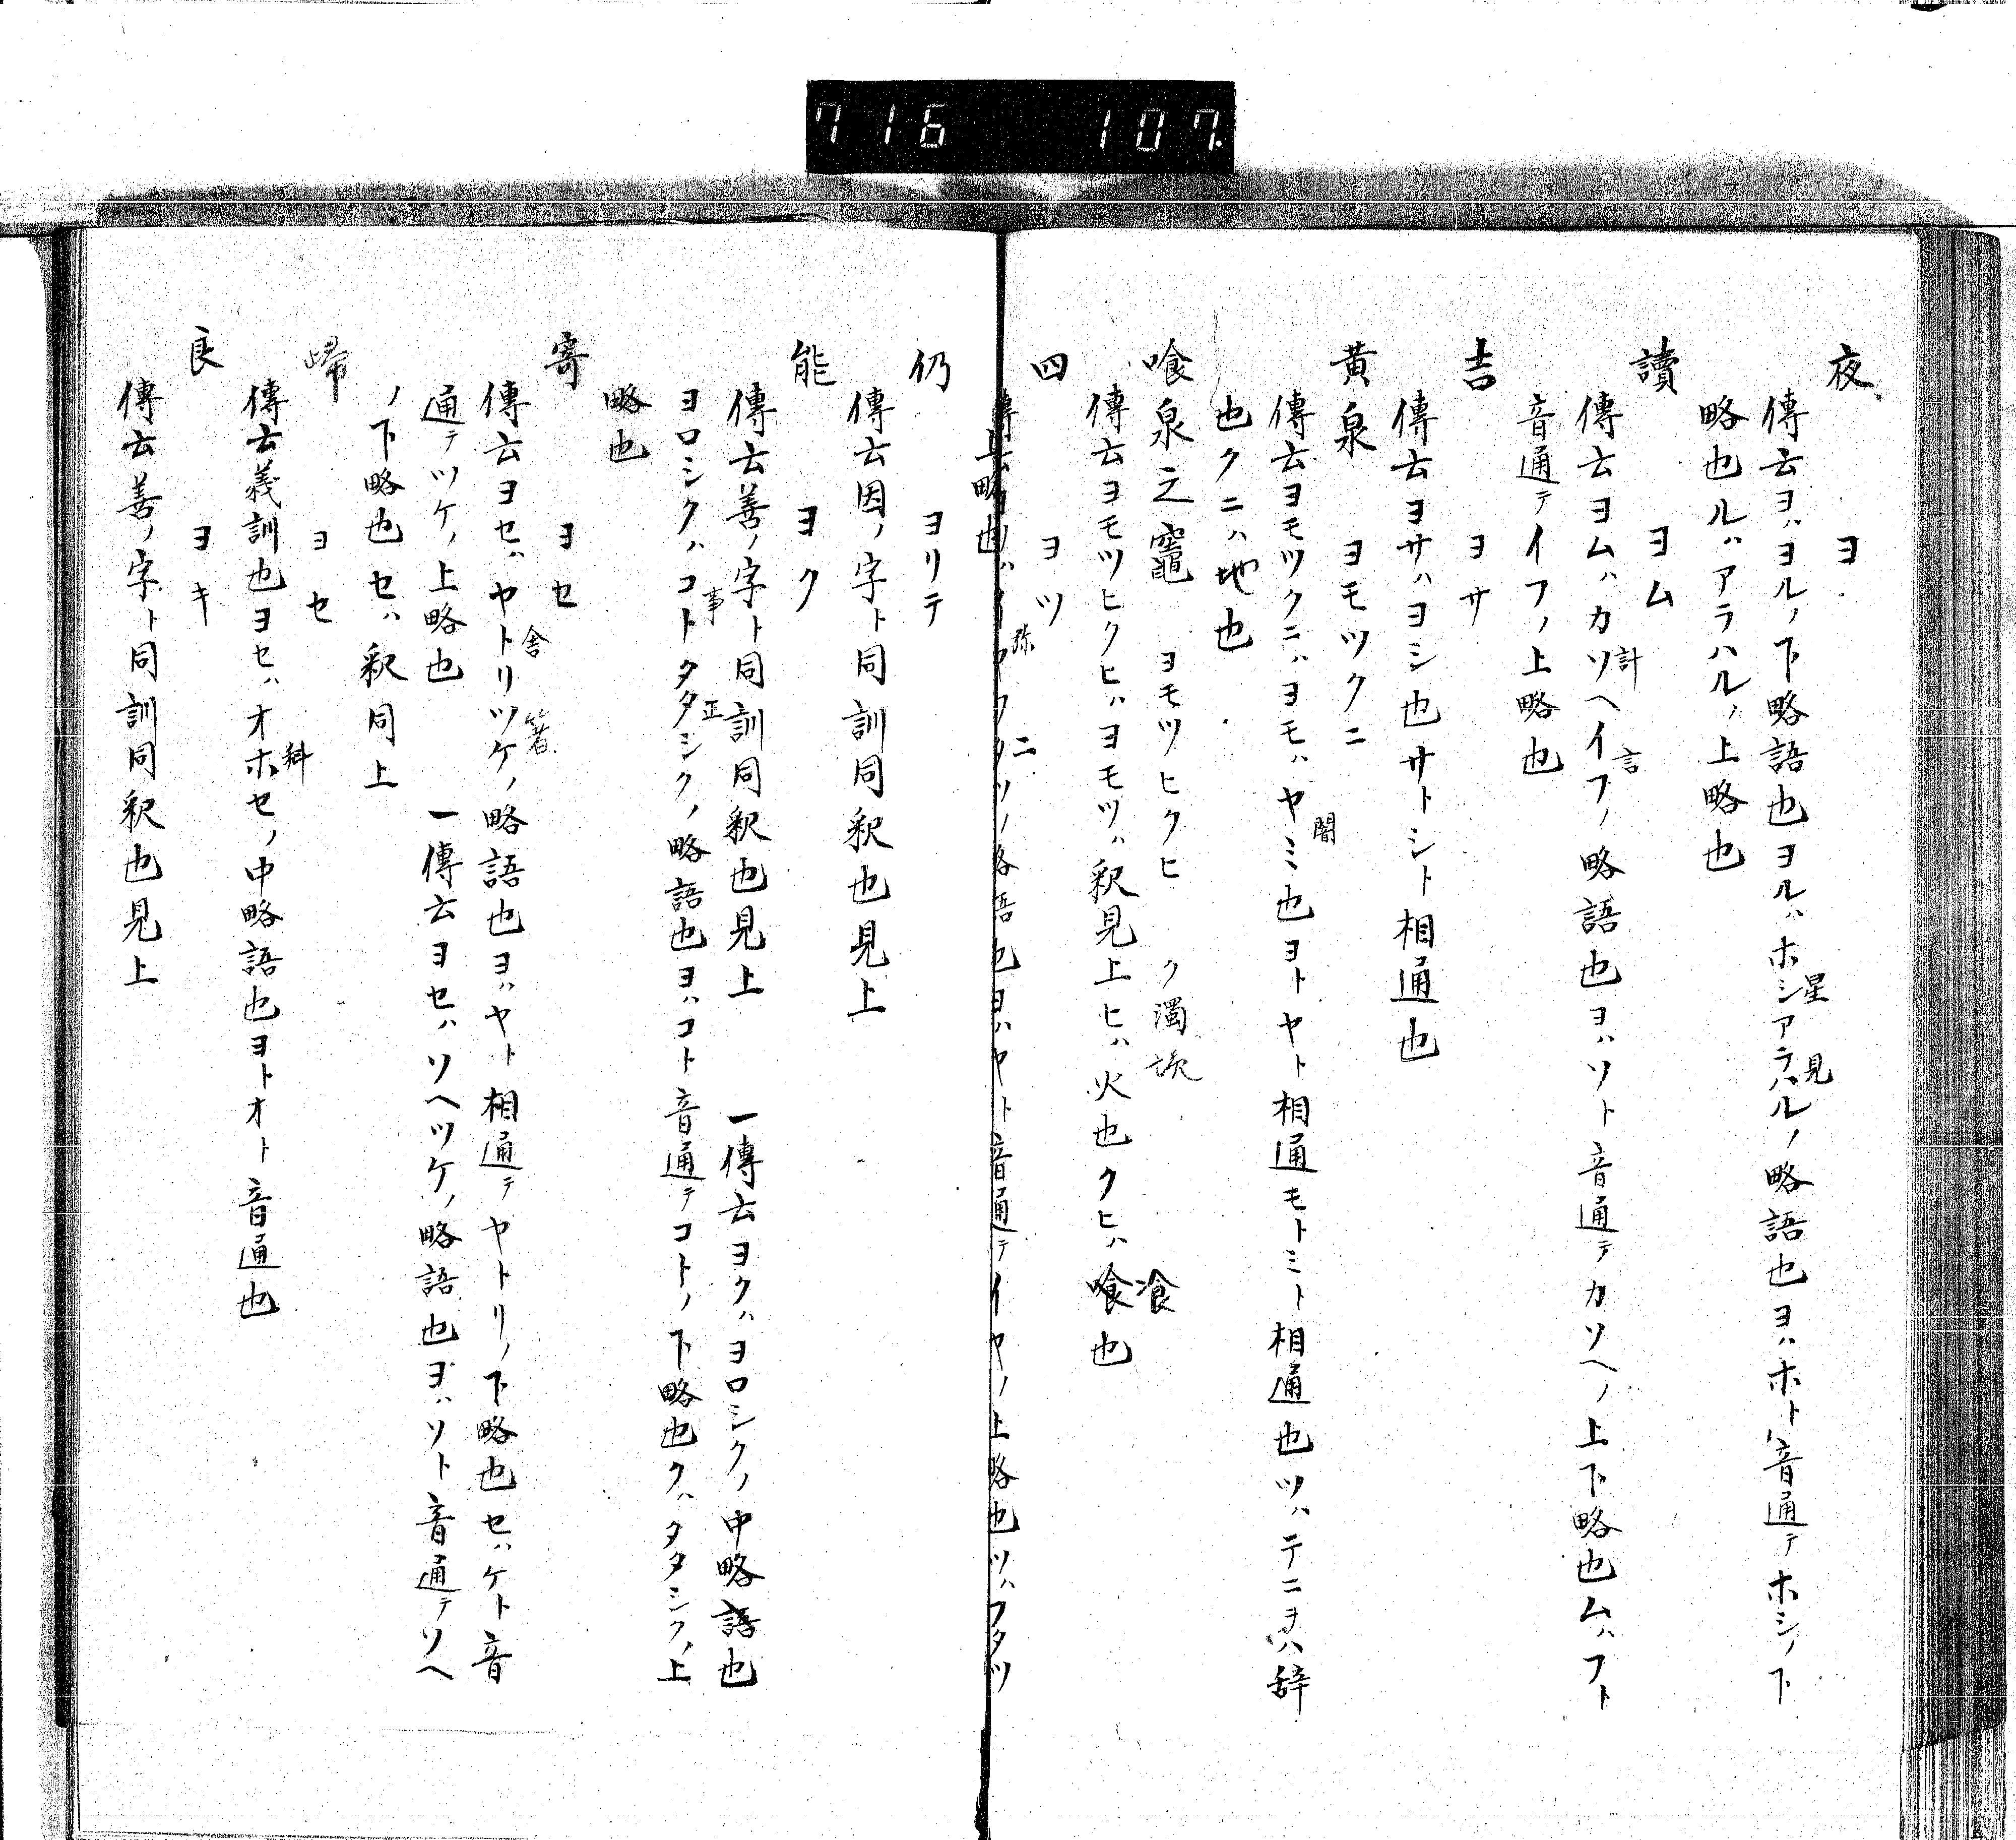 716 107.
夜 ヨ
傳云ヨハヨルノ下略語也ヨルハホシアラハルノ略語也ヨハホト音通テホシノ下
星 見
略也ルハアラハルノ上略也
讀 ヨム
傳云ヨムハカソヘイフノ略語也ヨハソト音通テカソヘノ上下略也ムハフト
計 言
音通テイフノ上略也
吉 ヨサ
傳云ヨサハヨシ也サトシト相通也
黄泉 ヨモツクニ
傳云ヨモツクニハヨモハヤミ也ヨトヤト相通モトミト相通也ツハテニヲハ辞
闇
也クニハ地也
喰泉之竈 ヨモツヒクヒ ク濁
傳云ヨモツヒクヒハヨモツハ釈見上ヒハ火也クヒハ喰也
飡
四 ヨツ
弥 二
音通テイヤノ上略也ツハフタツ
上略也
仍 ヨリテ
傳云因ノ字ト同訓同釈也見上
能 ヨク
傳云善ノ字ト同訓同釈也見上 一傳云ヨクハヨロシクノ中略語也
ヨロシクハコトタタシクノ略語也ヨハコト音通テコトノ下略也クハタタシクノ上
事 正
略也
寄 ヨセ
傳云ヨセハヤトリツケノ略語也ヨハヤト相通テヤトリノ下略也セハケト音
舎 著
通テツケノ上略也 一傳云ヨセハソヘツケノ略語也ヨハソト音通テソヘ
ノ下略也セハ釈同上
帰 ヨセ
傳云義訓也ヨセハオホセノ中略語也ヨトオト音通也
科
良 ヨキ
傳云善ノ字ト同訓同釈也見上